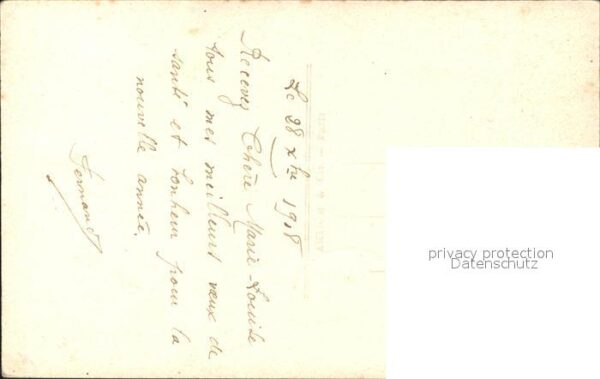 Le 28 xbre 1918
Recevez Chère Marie-Louise
tous mes meilleurs vœux de
santé et bonheur pour la
nouvelle année.
Fernand
privacy protection
Datenschutz